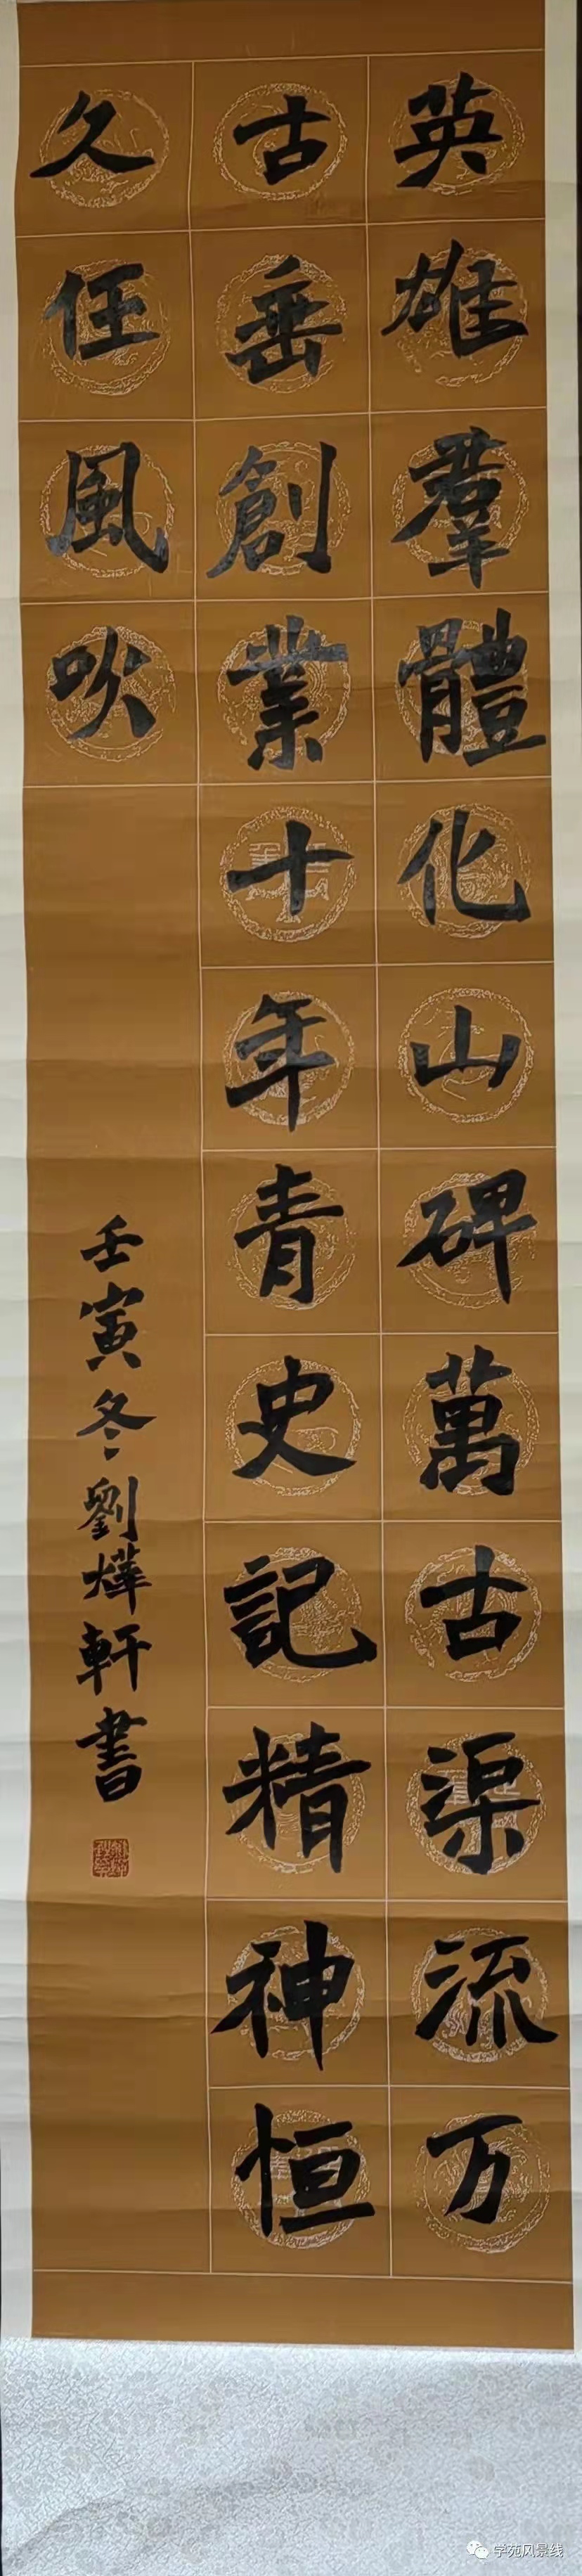 英雄羣體化山碑萬古渠流万
古垂創業十年青史記精神恒
久任風吹
壬寅冬劉燁軒書
学苑风景线